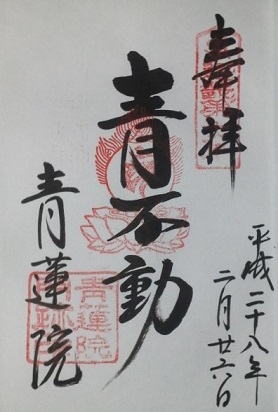 奉拝
平成二十八年
二月廿六日
青不動
青蓮院
青蓮院